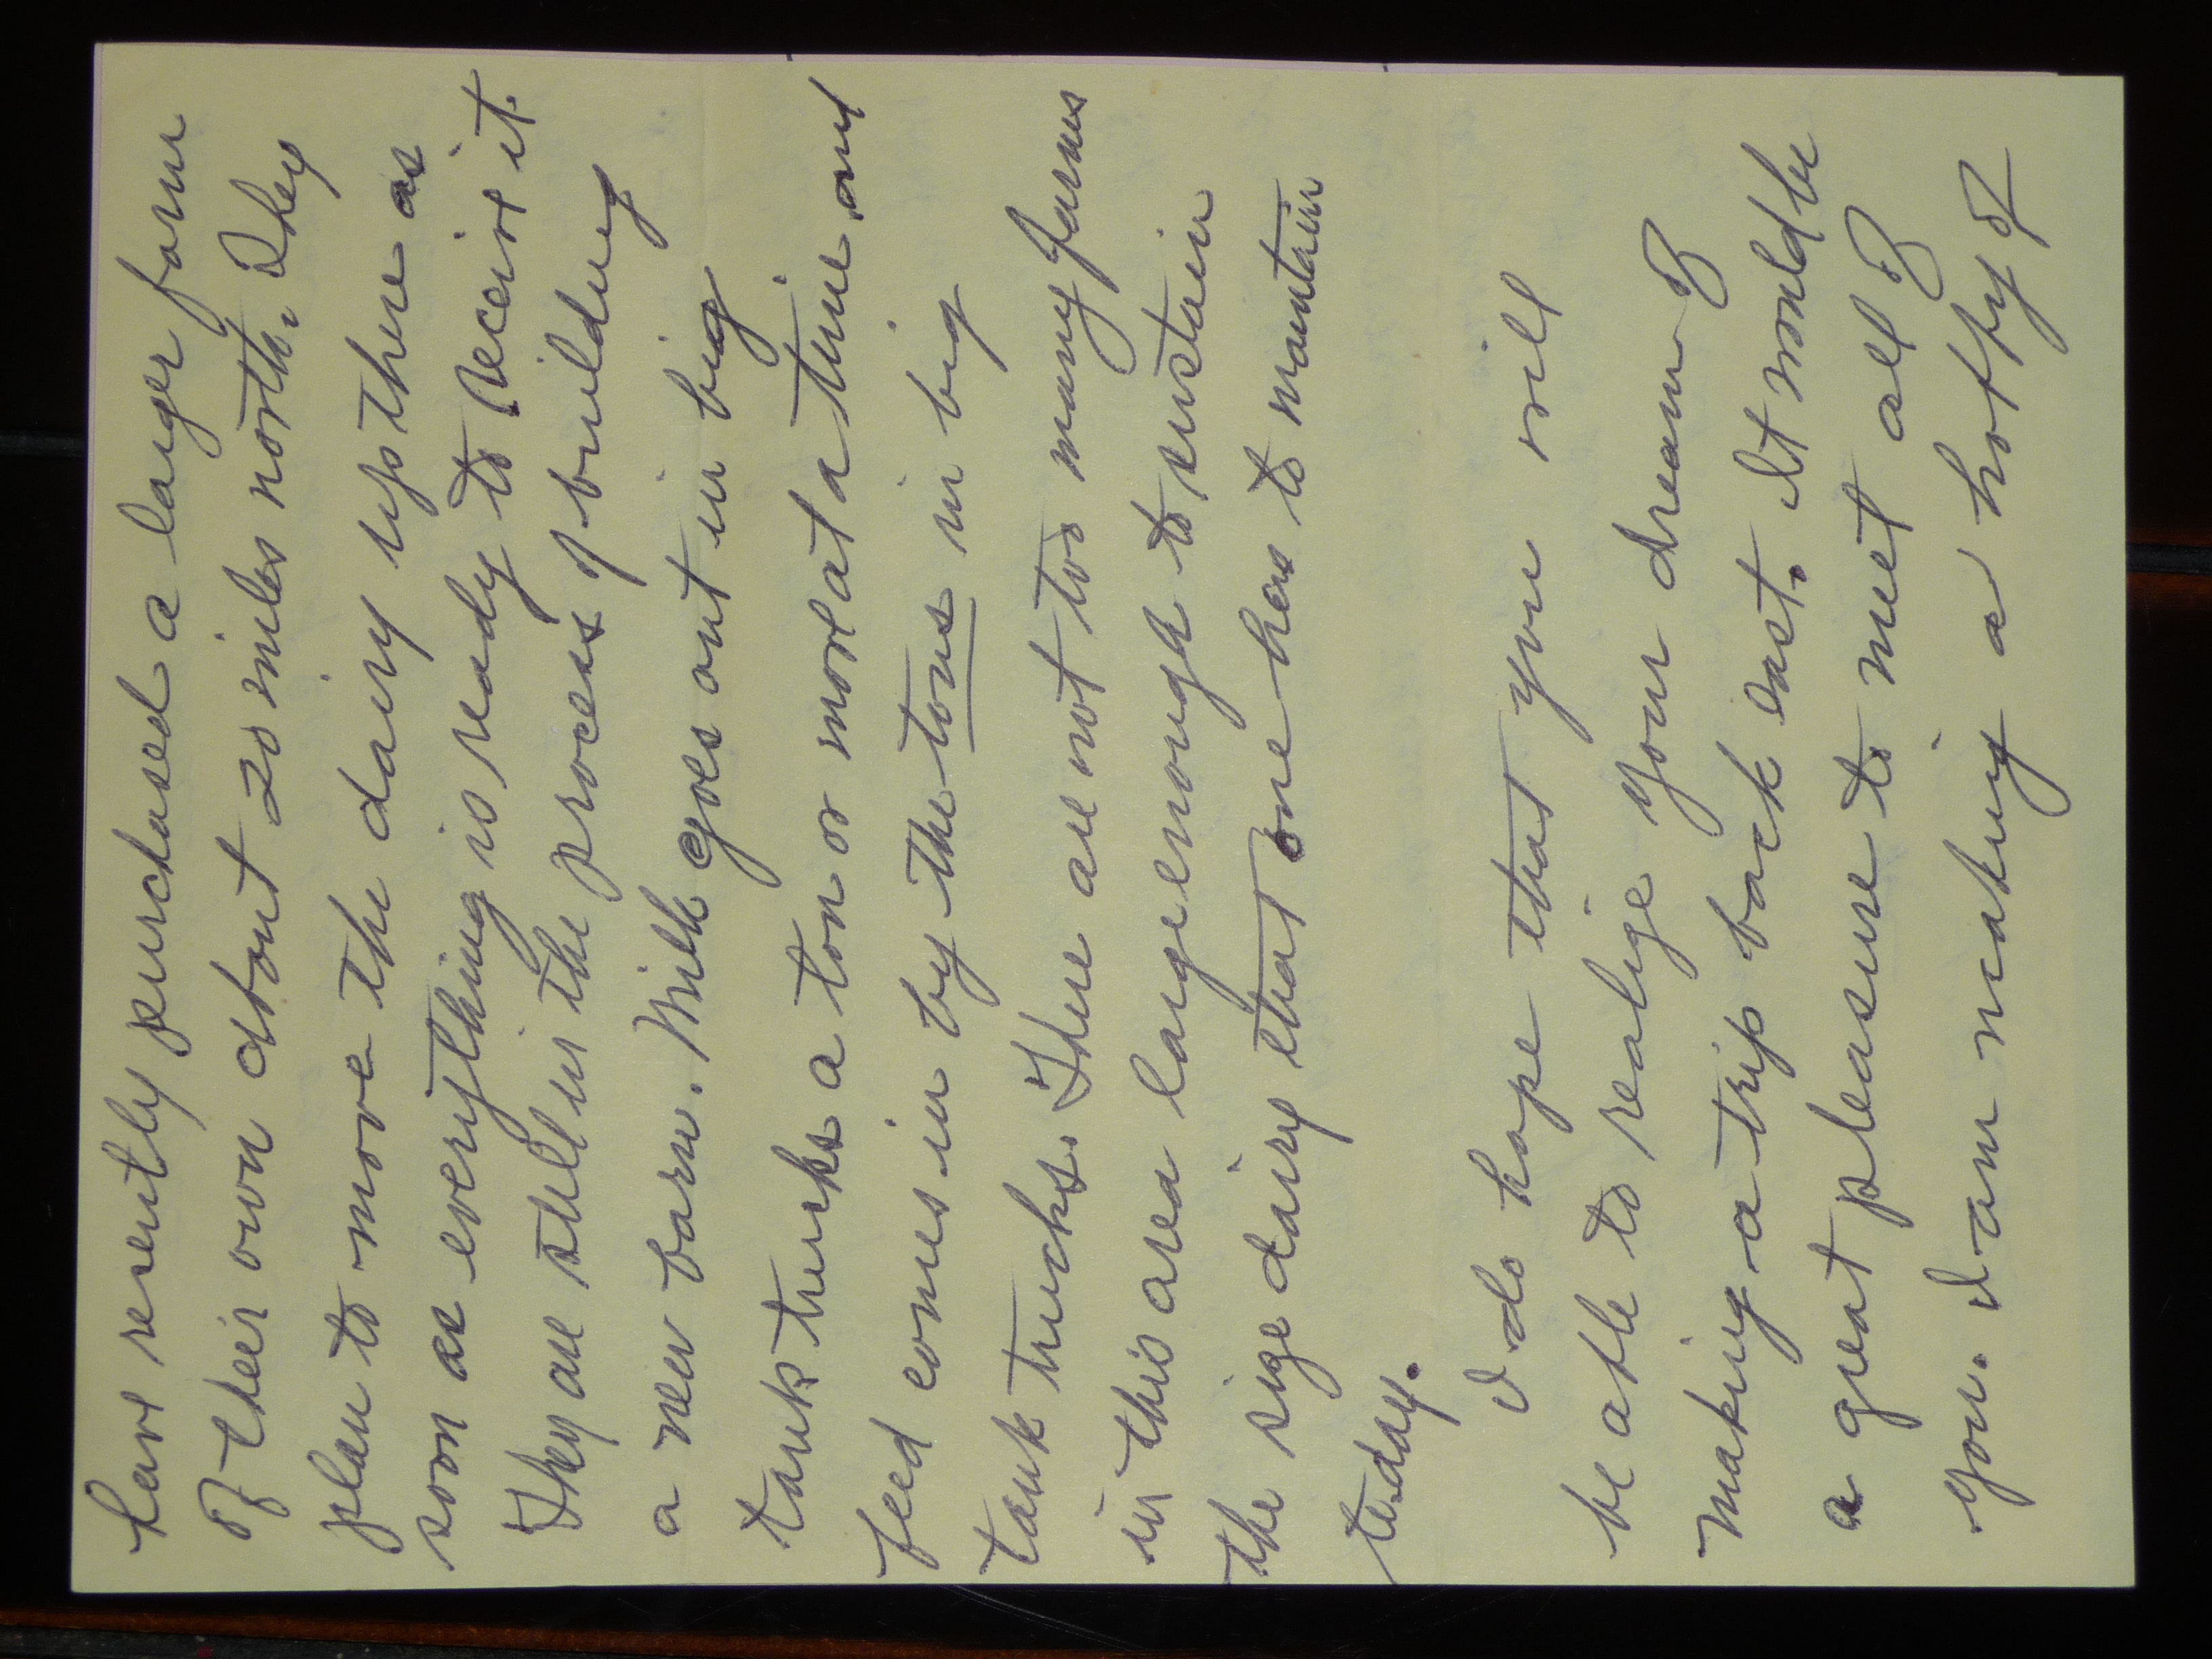 have recently purchased a larger farm
of their own about 20 miles north. They
plan to move the dairy up there as
soon as everything is ready to receive it.
They are still in the process of building
a new barn. Milk goes out in big
tank trucks a ton or more at a time and
feed comes in by the tons in big
tank trucks. There are not too many farms
in this area large enough to sustain
the size dairy that one has to maintain
today.
I do hope that you will
be able to realize your dream of
making a trip back east. It would be
a great pleasure to meet all of
you. I am making a hobby of